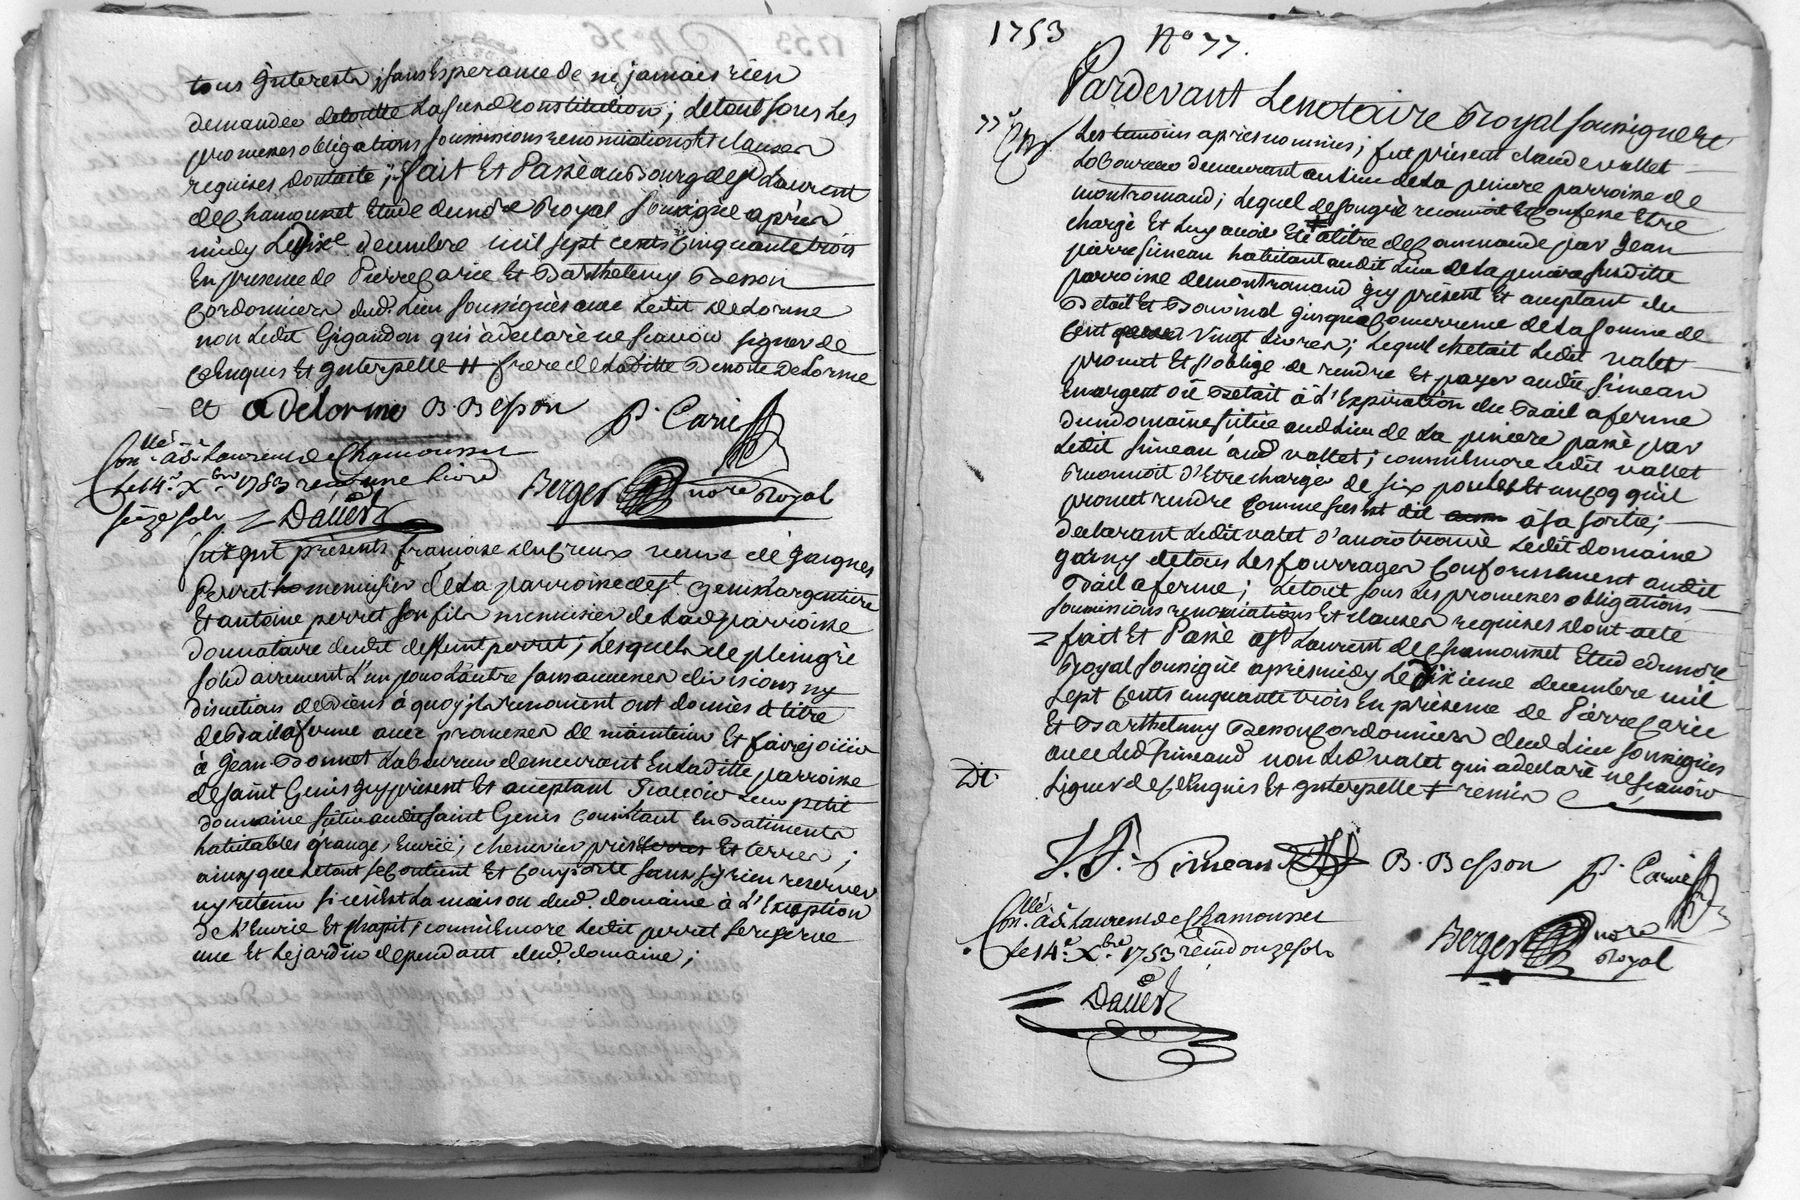 tous Interests, sans Esperance de ne jamais rien
demander de laditte constitution; Letout sous Les
promesses obligations soumissions renonciations Et clauses
requises dontacte; fait Et Passé au Bourg de St Laurent
de Chamousset Etude du nore Royal soussigné après
midy Le dixe decembre mil sept cents Cinquante trois
En presence de Pierre Carie Et Barthelemy Besson
Cordonniers dud. Lieu soussignés avec Ledit Delorme
non Ledit Gigandon qui à declaré ne scavoir signer de
ce Enquis Et Interpellé # frere de Laditte Benoite Delorme
et Delorme B Besson P. Carie
Conllé à St Laurend de Chamousset
Le 14e Xbre 1753 reçu une livre
seize sols Daüer Berger nore Royal
furent présents francoise veuve de
Perret menuisier de La parroisse de St Genis Largentiere
Et antoine perret son fils menuisier de Lad parroisse
donnataire dudit deffunt perret; Lesquels de plein gré
solidairement L'un pour L'autre sans aucunes divisions ny
discutions de Biens à quoy ils renoncent ont donnés à titre
de Bail à ferme avec promesses de maintenir Et faire joüir
à Jean Bonnet Laboureur demeurant En Laditte parroisse
de Saint Genis Icy présent Et acceptant Scavoir Leur petit
domaine scitué audit Saint Genis Consistant En Batiments
habitables grange, Ecurie, chenevier prés Et terres;
ainsy que Letout se Contient Et Comporte sans sy rien reserver
ny retenir si ce n'est La maison dud. domaine à L'Exception
de L'Ecurie Et ; comm'Encore Ledit perret se reserve
une Et Le jardin dependant dud. domaine;
1753 No 77.
Pardevant Le notaire Royal soussigné Et
77e Les temoins apres nommés; fut présent claude vallet
Laboureur demeurant au Lieu de La pinière parroisse de
montromand; Lequel de son gré reconnoit Et Confesse Etre
chargé Et Luy avoir Eté # à titre de Commande par Jean
pierre simean habitant audit Lieu de La piniere susditte
parroisse de montromand Icy présent Et acceptant du
Betail Et Bovinal jusques à Concurrence de La somme de
Cent Vingt Livres; Lequel Betail Ledit valet
promet Et s'oblige de rendre Et payer audit simean
En argent où Betail à L'Expiration du Bail a ferme
dundomaine scitué aud Lieu de La piniere passé par
Ledit simean aud vallet; comm'Encore Ledit vallet
reconnoit d'Etre chargé de six poules Et un Coq qu'il
promet rendre Comme sus est dit à sa sortie;
declarant Ledit valet d'avoir trouvé Ledit domaine
garny de tous Les fourrages Conformement audit
Bail a ferme; Letout sous Les promesses obligations
soumissions renonciations Et clauses requises dont acte
fait Et Passé à St Laurent de Chamousset Etude du nore
Royal soussigné après midy Le dixieme decembre mil
sept Cents cinquante trois En présence de Pierre Carie
Et Barthelemy Besson Cordonniers dud Lieu soussignés
avec Led simeand non Led valet qui a declaré ne scavoir
signer de Ce Enquis Et Interpellé # remis
J. P. Simean B. Besson P. Carie
Conllé à St Laurend de Chamousset
Le 14e Xbre 1753 reçu douze sols Berger nore Royal
Daüer